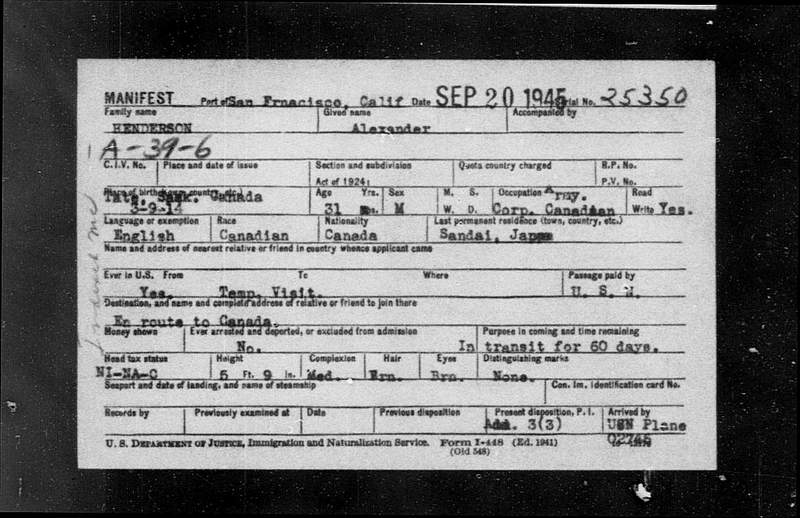 MANIFEST Port of San Frnacisco, Calif Date SEP 20 1945 Serial No. 25350
Family name Given name Accompanied by
HENDERSON Alexander
A-39-6
C.I.V. No. Place and date of issue Section and subdivision Quota country charged R.P. No.
Act of 1924: P.V. No.
Place of birth (town, country, etc.) Age Yrs. Sex M. S. Occupation Army. Read
Tate, Sask. Canada
3-9-14 31 Mos. M W. D. Corp. Canadian Write Yes.
Language or exemption Race Nationality Last permanent residence (town, country, etc.)
English Canadian Canada Sandai, Japan
Name and address of nearest relative or friend in country whence applicant came
Ever in U.S. From To Where Passage paid by
Yes. Temp. Visit. U. S. N.
Destination, and name and complete address of relative or friend to join there
En route to Canada.
Money shown Ever arrested and deported, or excluded from admission Purpose in coming and time remaining
No. In transit for 60 days.
Head tax status Height Complexion Hair Eyes Distinguishing marks
NI-NA-C 5 Ft. 9 In. Med. Brn. Brn. None.
Seaport and date of landing, and name of steamship Can. Im. Identification card No.
Records by Previously examined at Date Previous disposition Present disposition, P. I. Arrived by
Adm. 3(3) USN Plane
U. S. DEPARTMENT OF JUSTICE, Immigration and Naturalization Service. Form I-448 (Ed. 1941)
(Old 548)